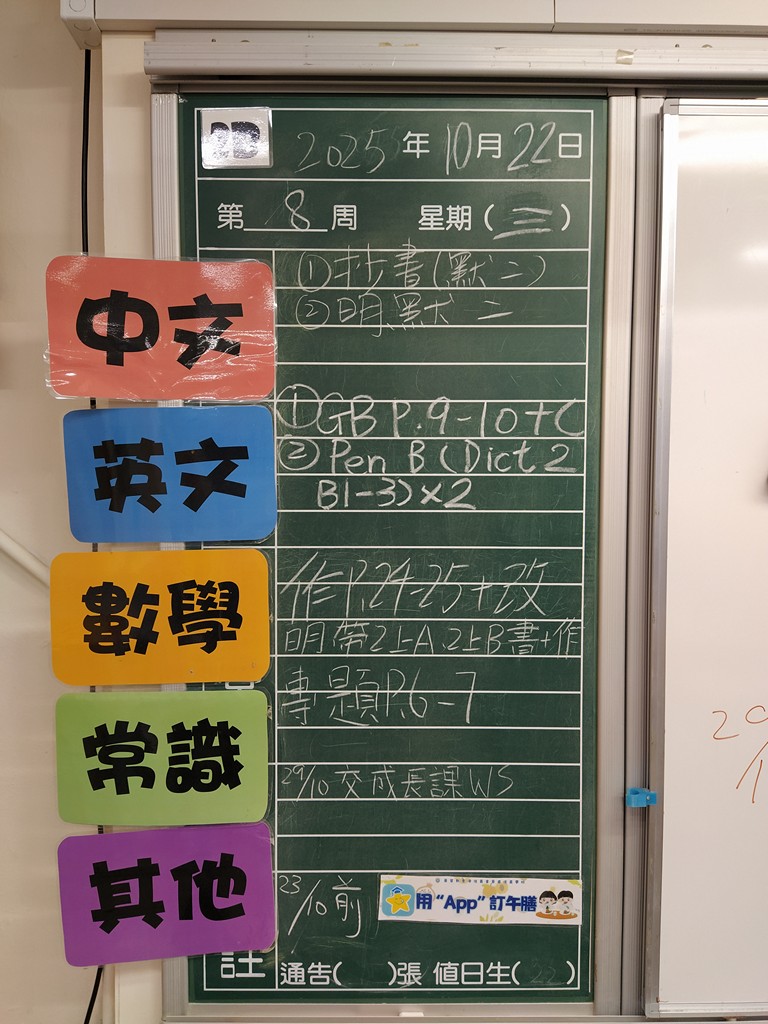 2D
2025年10月22日
第 8 周 星期(三)
中文
①抄書(默二)
②明默二
英文
①GB P.9-10+C
②Pen B (Dict 2
B1-3)×2
數學
作P.24-25+改
明帶2上A、2上B書+作
常識
專題P.6-7
29/10交成長課WS
其他
23/10前
用“App”訂午膳
註
通告( )張 值日生(22)